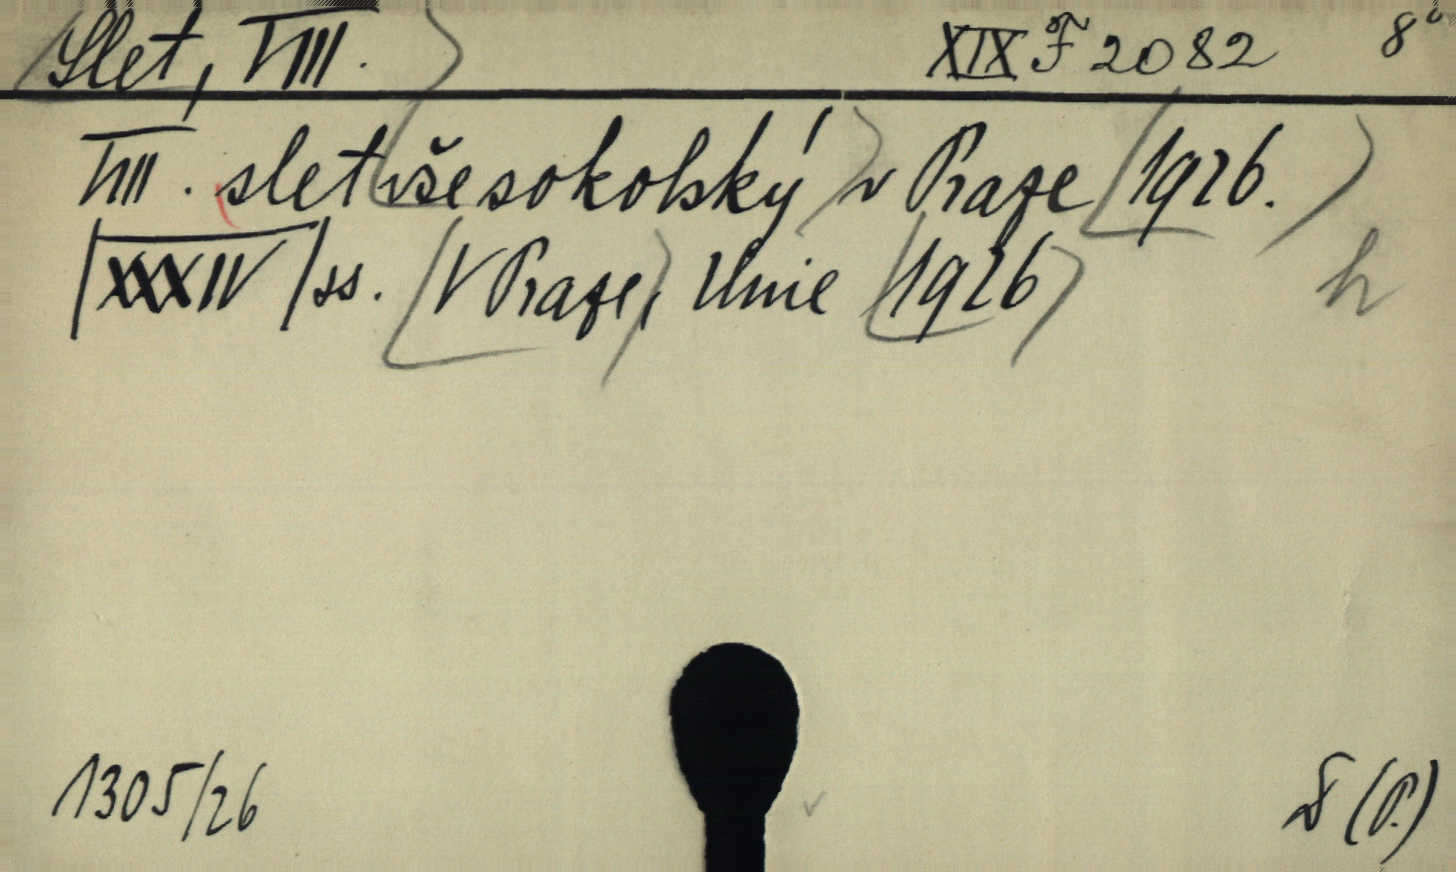 Slet, VIII. XIX F 2082 8°
VIII. slet všesokolský v Praze 1926.
|XXXIV| ss. V Praze, Unie 1926 h
1305/26 (P.)